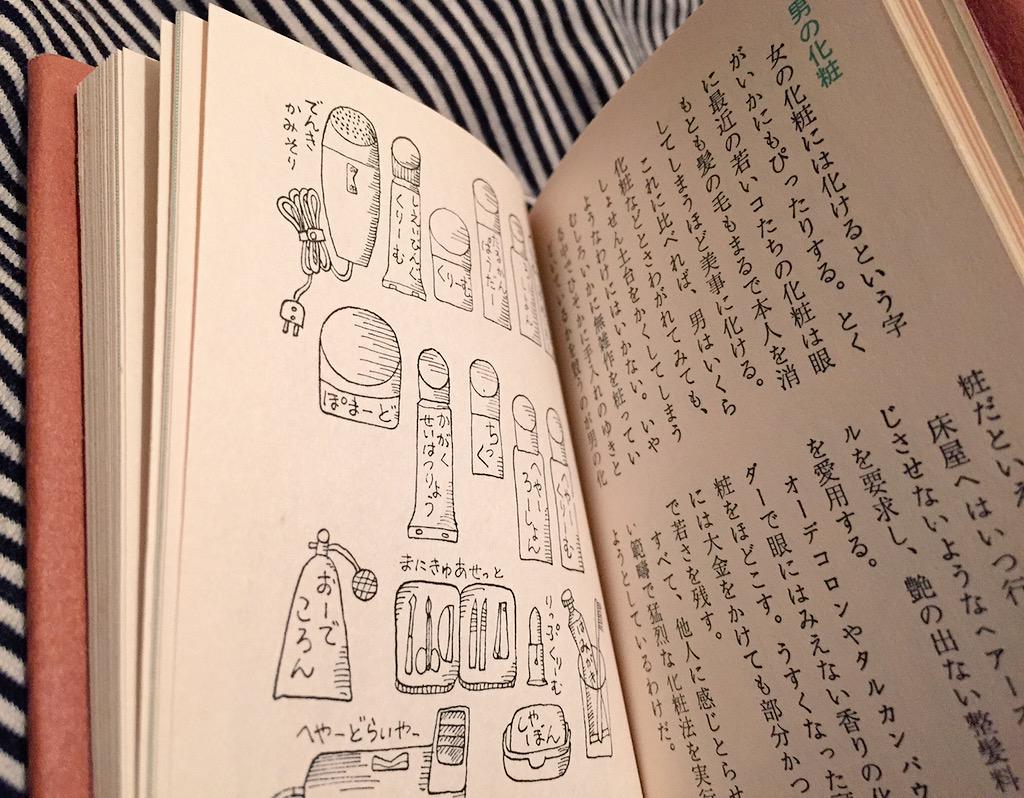 男の化粧
女の化粧には化けるという字
がいかにもぴったりする。とく
に最近の若いコたちの化粧は眼
もとも髪の毛もまるで本人を消
してしまうほど美事に化ける。
これに比べれば、男はいくら
化粧などとさわがれてみても、
しょせん土台をかくしてしまう
ようなわけにはいかない。いや
むしろいかに無雑作を粧ってい
粧だといえ
床屋へはいつ行
じさせないようなヘアー
ルを要求し、艶の出ない整髪料
を愛用する。
オーデコロンやタルカンパウ
ダーで眼にはみえない香りの化
粧をほどこす。うすくなった
には大金をかけても部分かつ
で若さを残す。
すべて、他人に感じとらせ
い範疇で猛烈な化粧法を実行
ようとしているわけだ。
でんき
かみそり
しぇいびんぐ
くりーむ
くりーむ
ぽまーど
かがく
せいはつりょう
ちっく
へやー
ろーしょん
おーで
ころん
まにきゅあせっと
りっぷくりーむ
はみがき
へやーどらいやー
しゃ
ぼん